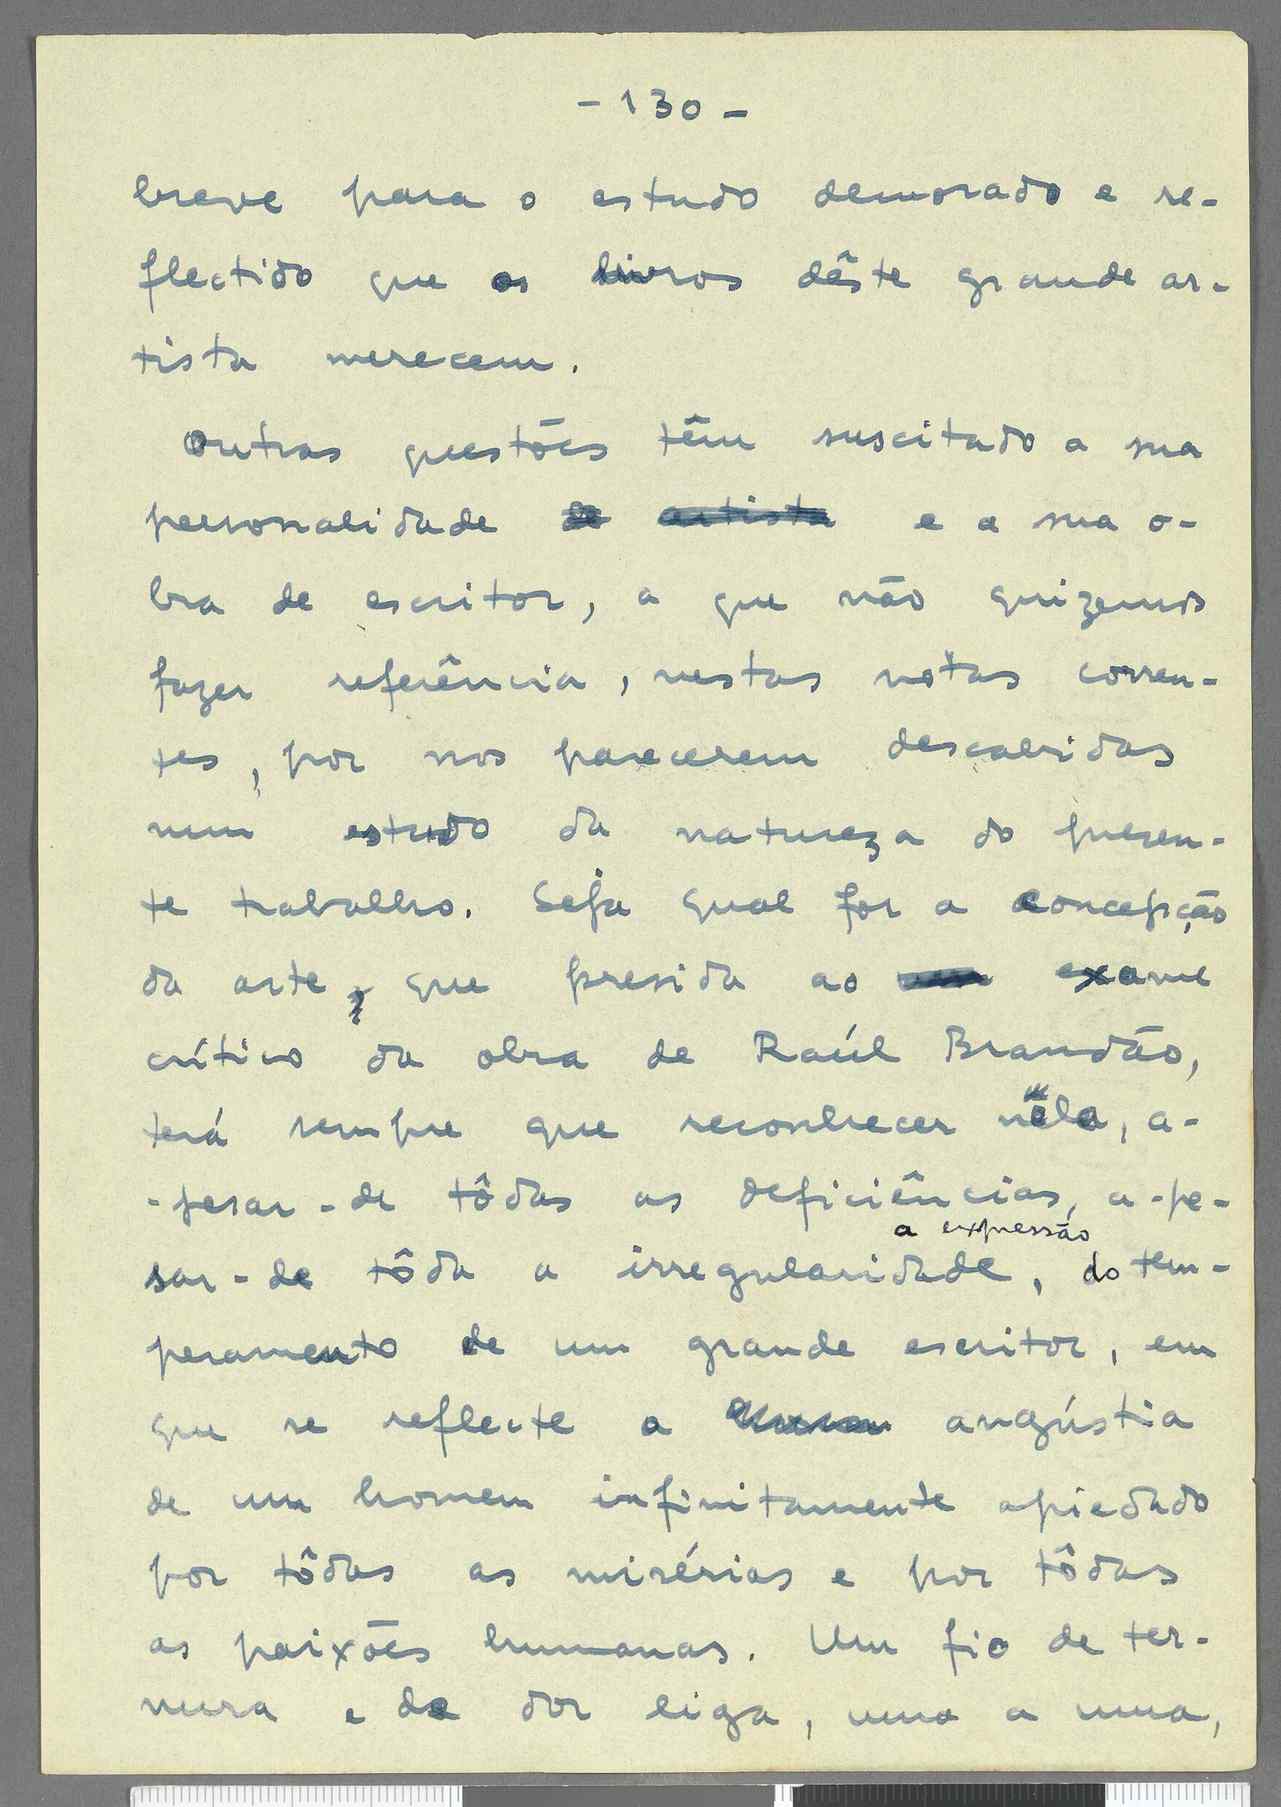 - 130 -
breve para o estudo demorado e re-
flectido que os livros dêste grande ar-
tista merecem.
Outras questões têm suscitado a sua
personalidade de artista e a sua o-
bra de escritor, a que não quizemos
fazer referência, nestas notas corren-
tes, por nos parecerem descabidas
num estudo da natureza do presen-
te trabalho. Seja qual for a concepção
da arte, que presida ao exame
crítico da obra de Raúl Brandão,
terá sempre que reconhecer nela, a-
-pesar-de tôdas as deficiências, a-pe-
a expressão
sar-de tôda a irregularidade, do tem-
peramento de um grande escritor, em
que se reflecte a angústia
de um homem infinitamente apiedado
por tôdas as misérias e por tôdas
as paixões humanas. Um fio de ter-
nura e de dor liga, uma a uma,